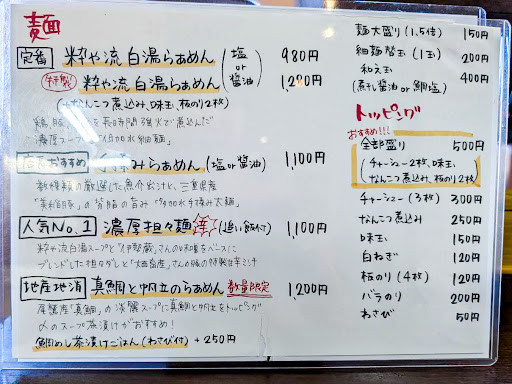 麺
定番 粋や流 白湯らぁめん (塩 or 醤油) 980円
粋や流 白湯らぁめん 1,280円
(+なんこつ煮込み、味玉、板のり2枚)
を長時間強火で煮込んだ
濃厚スープ 加水細麺」
おすすめ らぁめん (塩 or 醤油) 1,100円
厳選した魚介出汁と、三重県産
の背脂の旨み 加水手揉み太麺」
人気No.1 濃厚担々麺 (追い飯付) 1,100円
粋や流白湯スープと さんの味噌をベースに
ブレンドした担々ダレと さんの豚の特製旨辛ミンチ
地産地消 真鯛と帆立のらぁめん 数量限定 1,200円
尾鷲産「真鯛」の淡麗スープに真鯛と帆立をトッピング
〆のスープ茶漬けがおすすめ!
鯛めし茶漬けごはん (わさび付) +250円
麺大盛り (1.5倍) 150円
細麺替玉 (1玉) 200円
和え玉 400円
(煮干し醤油 or 鯛塩)
トッピング
おすすめ!!!
全部盛り 500円
(チャーシュー2枚、味玉、
なんこつ煮込み、板のり2枚)
チャーシュー (3枚) 300円
なんこつ煮込み 250円
味玉 150円
白ねぎ 120円
板のり (4枚) 120円
バラのり 200円
わさび 50円